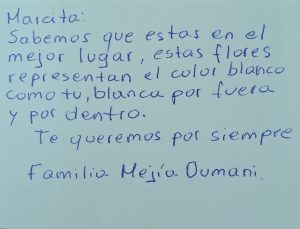 Marcita:
Sabemos que estas en el
mejor lugar, estas flores
representan el color blanco
como tu, blanca por fuera
y por dentro.
Te queremos por siempre
Familia Mejía Dumani.